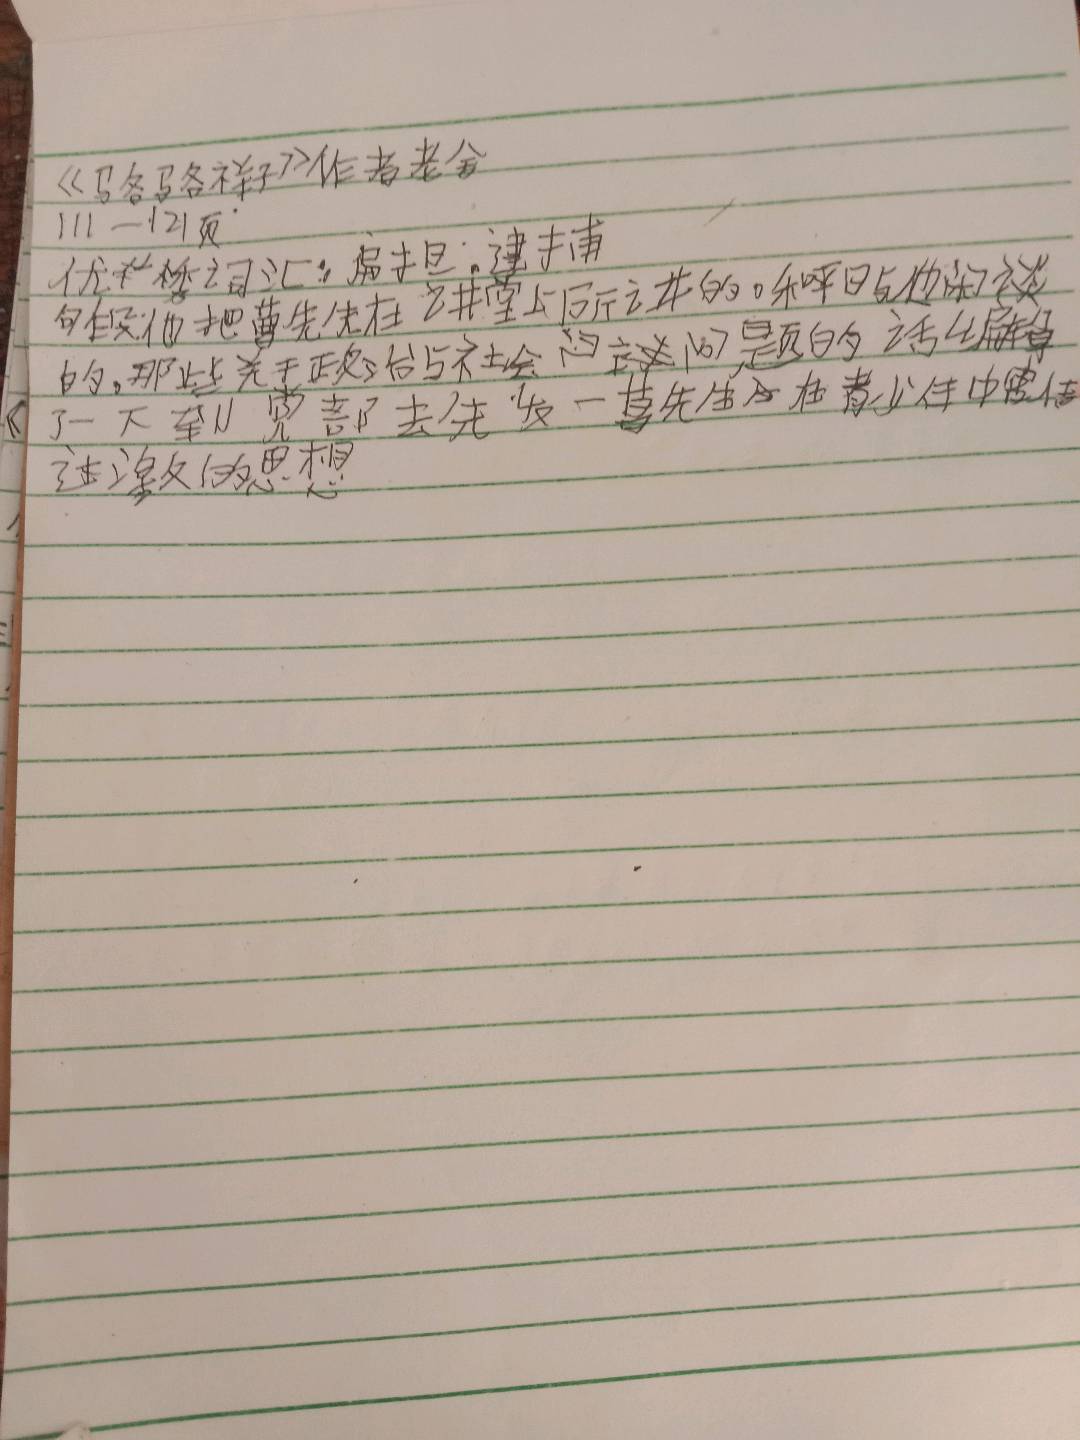 《骆骆祥子》作者老舍
111一121页
优桥词汇:扁担:逮捕
句段他把曹先生在讲堂上所讲的。和平日与他闲谈
的。那些关于政治与社会问题的话编辑
了一下到党部去先发一曹先生在青少年中宣传
过激的思想